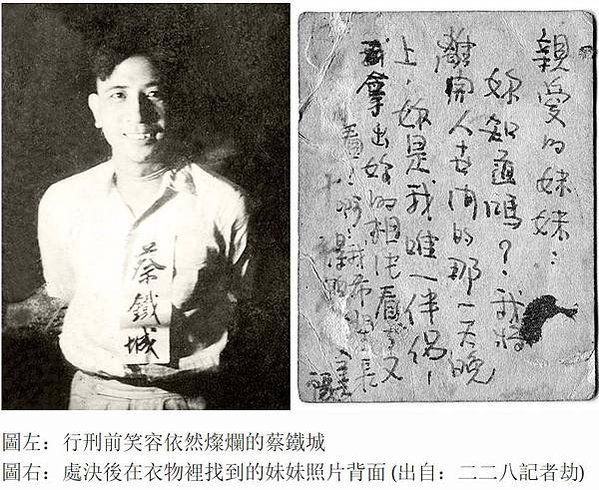 蔡鐵城
親爱的妹妹：
妳知道嗎？我將
離開人世間的那一天晚
上，妳是我唯一伴侶，
拿出妳的相 看了又
看 啊 我希 長
圖左：行刑前笑容依然燦爛的蔡鐵城
圖右：處決後在衣物裡找到的妹妹照片背面 (出自：二二八記者劫)